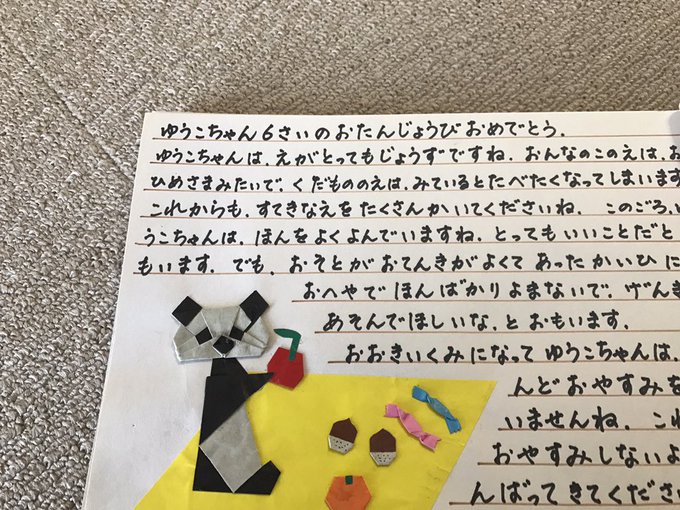 ゆうこちゃん6さいのおたんじょうびおめでとう.
ゆうこちゃんは.えがとってもじょうずですね.おんなのこのえは.お
ひめさまみたいで.くだもののえは.みているとたべたくなってしまいます
これからも.すてきなえをたくさんかいてくださいね. このごろ.
うこちゃんは.ほんをよくよんでいますね.とってもいいことだと
もいます. でも.おそとがおてんきがよくてあったかいひに
おへやでほんばかりよまないで.げんき
あそんでほしいな.とおもいます.
おおきいくみになってゆうこちゃんは.
んどおやすみを
いませんね. これ
おやすみしないよ
んばってきてくださ